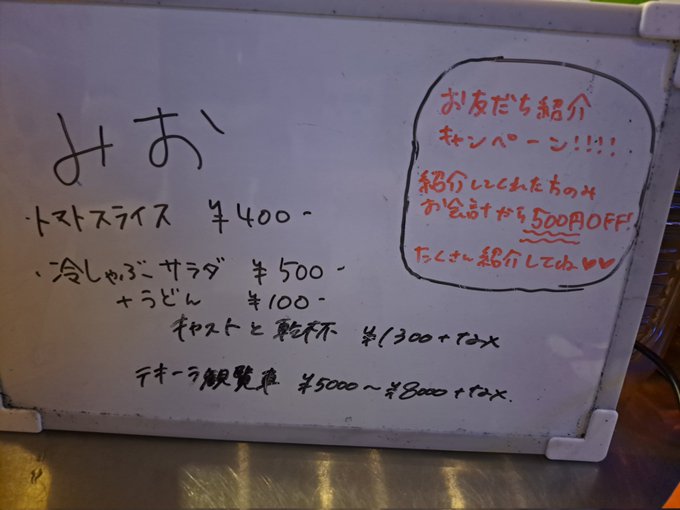 みお
・トマトスライス ¥400-
・冷しゃぶサラダ ¥500-
+うどん ¥100-
キャストと乾杯 ¥1300+tax
テキーラ観覧車 ¥5000〜¥8000+tax.
お友だち紹介
キャンペーン!!!!
紹介してくれた方のみ
お会計から500円OFF!
たくさん紹介してね♥♥